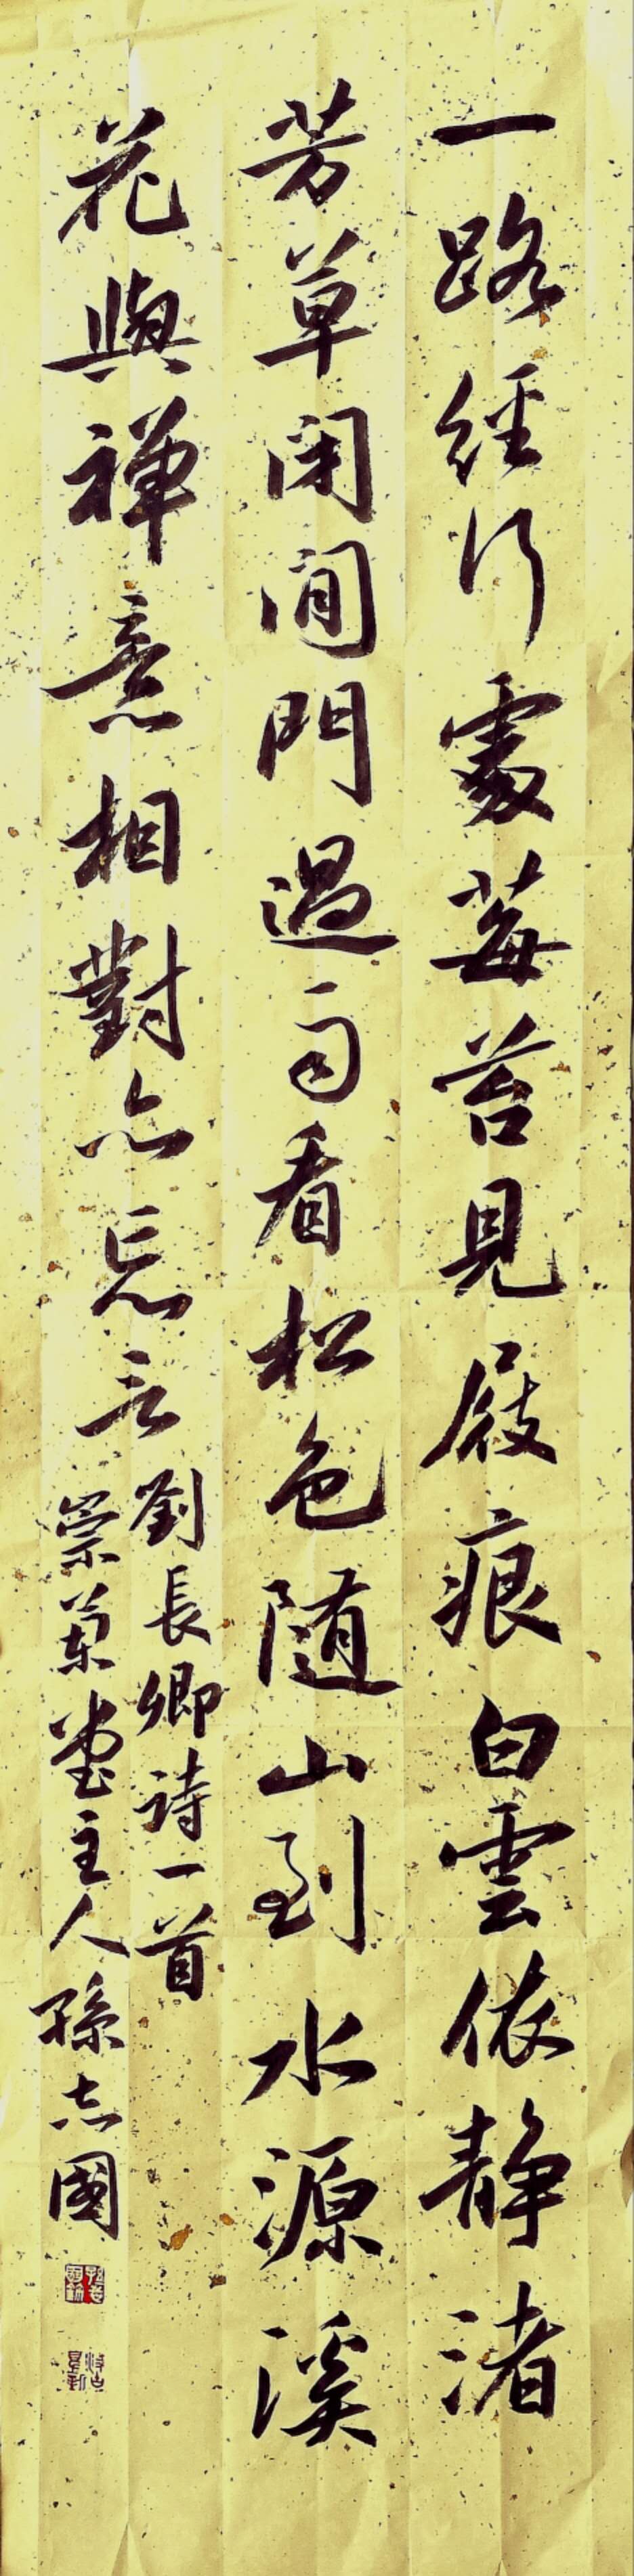 一路經行處莓苔見屐痕白雲依静渚
芳草閉閒門過雨看松色隨山到水源溪
花與禪意相對亦忘言
劉長卿詩一首
崇蘭堂主人孫志國